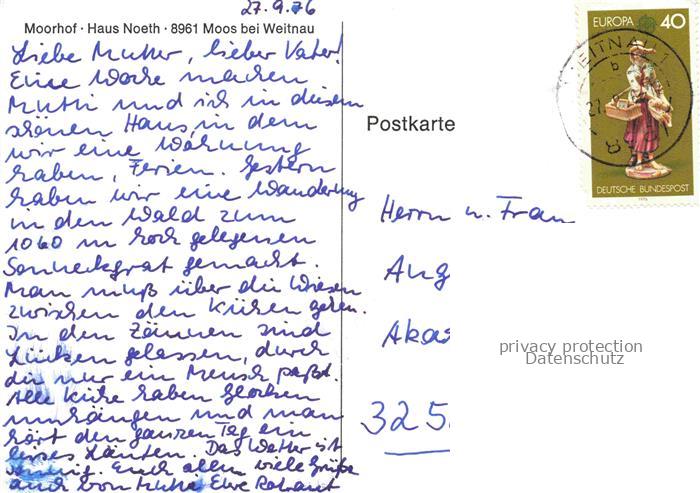 27.9.76
Moorhof · Haus Noeth · 8961 Moos bei Weitnau
Liebe Mutter, lieber Vater!
Eine Woche machen
Mutti und ich in diesem
schönen Haus, in dem
wir eine Wohnung
haben, Ferien. Gestern
haben wir eine Wanderung
in den Wald zum
1060 m hoch gelegenen
Sonneckgrat gemacht.
Man muß über die Wiesen
zwischen den Kühen gehen.
In den Zäunen sind
Lücken gelassen, durch
die nur ein Mensch paßt.
Alle Kühe haben Glocken
umhängen und man
hört den ganzen Tag ein
leises Läuten. Das Wetter ist
sonnig. Euch allen viele Grüße
auch von Mutti Eure Rotraut
Postkarte
EUROPA 40
DEUTSCHE BUNDESPOST
1976
WEITNAU 1
b
Herrn u. Frau
Aug
Akas
325
privacy protection
Datenschutz